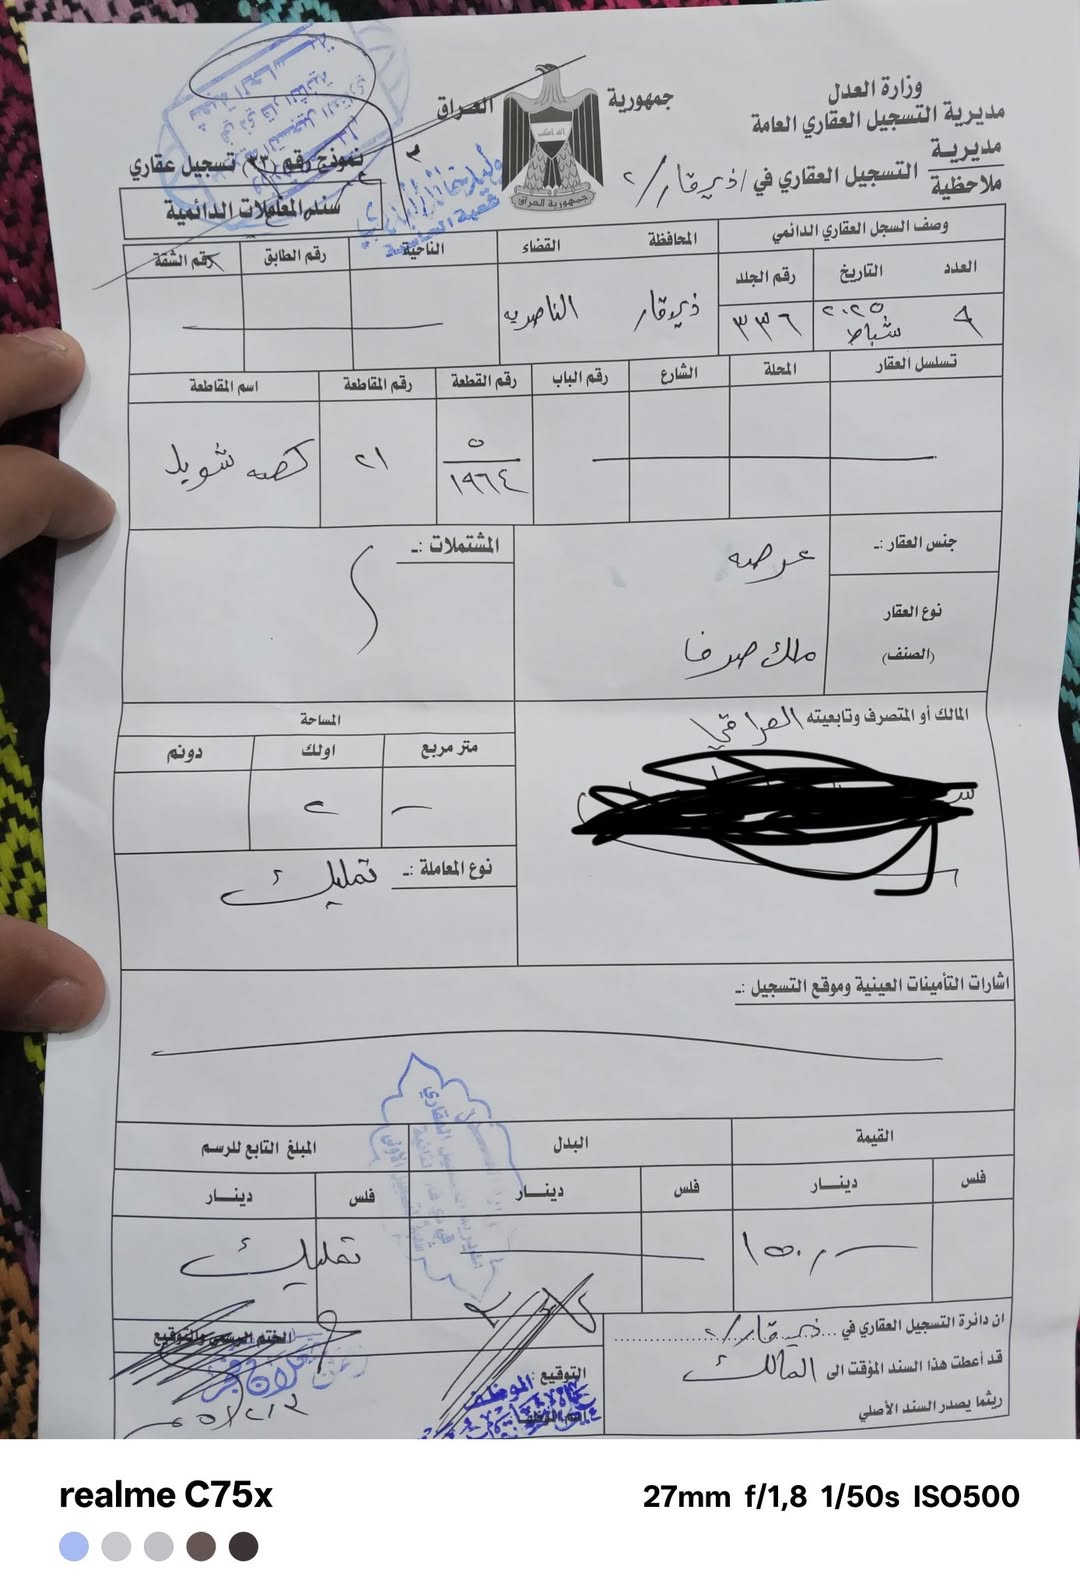 وزارة العدل
مديرية التسجيل العقاري العامة
مديرية
ملاحظية
التسجيل العقاري في / ذي قار / ٢
جمهورية
العراق
الله اكبر
جمهورية العراق
نموذج رقم (٣٣) تسجيل عقاري
سند المعاملات الدائمية
شعبة
وصف السجل العقاري الدائمي
العدد
التاريخ
رقم الجلد
٩
٢٠٢٥
شباط
٣٣٦
المحافظة
القضاء
الناحية
رقم الطابق
رقم الشقة
ذي قار
الناصريه
تسلسل العقار
المحلة
الشارع
رقم الباب
رقم القطعة
رقم المقاطعة
اسم المقاطعة
٥
١٩٦٤
٢١
كصه شويلد
جنس العقار :ـ
عرصه
نوع العقار
(الصنف)
ملك صرفا
المشتملات :ـ
المالك أو المتصرف وتابعيته العراقي
المساحة
متر مربع
اولك
دونم
ــ
٢
نوع المعاملة :ـ تمليك
اشارات التأمينات العينية وموقع التسجيل :ـ
القيمة
البدل
المبلغ التابع للرسم
فلس
دينـــار
فلس
دينـــار
فلس
دينـــار
تمليك
ان دائرة التسجيل العقاري في ... ذي قار / ٢
قد أعطت هذا السند المؤقت الى المالك
ريثما يصدر السند الأصلي
التوقيع :
الموظف
اسم الموظف
الختم الرسمي والتوقيع
realme C75x
27mm f/1,8 1/50s ISO500